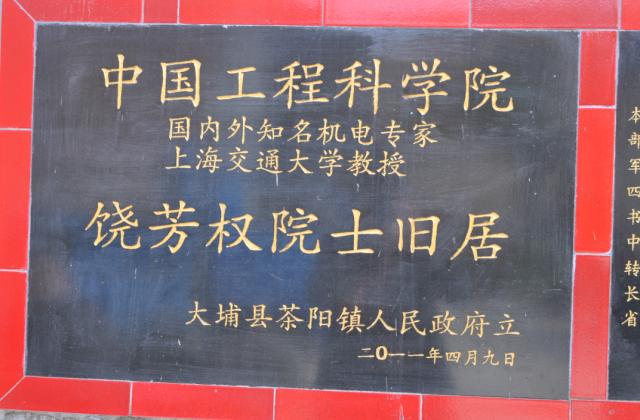 中国工程科学院
国内外知名机电专家
上海交通大学教授
饶芳权院士旧居
大埔县茶阳镇人民政府立
二〇一一年四月九日
本部军四书中转长省